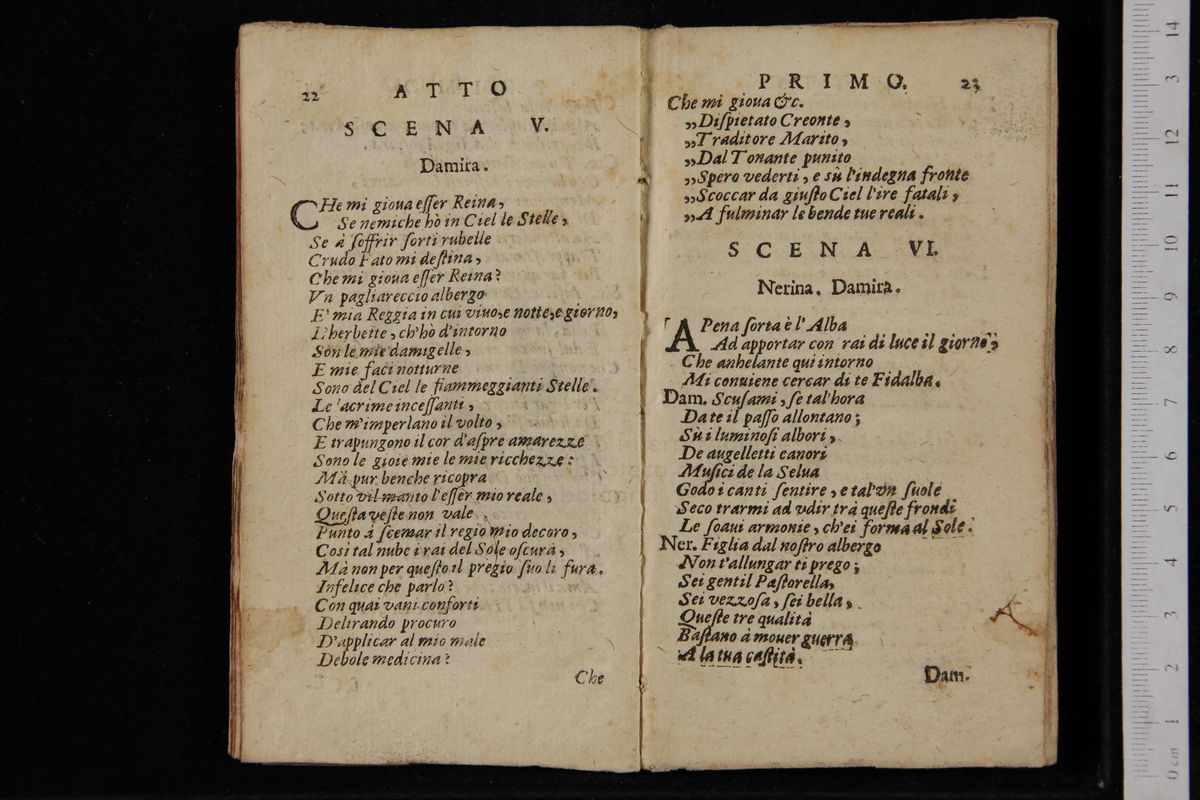 22 ATTO
SCENA V.
Damira.
CHe mi gioua eſſer Reina,
Se nemiche hò in Ciel le Stelle,
Se à ſoffrir ſorti rubelle
Crudo Fato mi deſtina,
Che mi gioua eſſer Reina?
Vn pagliareccio albergo
E' mia Reggia in cui viuo, e notte, e giorno,
L'herbette, ch'hò d'intorno
Son le mie damigelle,
E mie faci notturne
Sono del Ciel le fiammeggianti Stelle.
Le lacrime inceſſanti,
Che m'imperlano il volto,
E trapungono il cor d'aſpre amarezze
Sono le gioie mie le mie ricchezze:
Mà pur benche ricopra
Sotto vil manto l'eſſer mio reale,
Queſta veſte non vale
Punto à ſcemar il regio mio decoro,
Cosi tal nube i rai del Sole oſcura,
Mà non per queſto il pregio ſuo li fura.
Infelice che parlo?
Con quai vani conforti
Delirando procuro
D'applicar al mio male
Debole medicina?
Che
PRIMO. 23
Che mi gioua &c.
„Diſpietato Creonte,
„Traditore Marito,
„Dal Tonante punito
„Spero vederti, e sù l'indegna fronte
„Scoccar da giuſto Ciel l'ire fatali,
„A fulminar le bende tue reali.
SCENA VI.
Nerina. Damira.
APena ſorta è l'Alba
Ad apportar con rai di luce il giorno,
Che anhelante qui intorno
Mi conuiene cercar di te Fidalba.
Dam. Scuſami, ſe tal'hora
Da te il paſſo allontano;
Sù i luminoſi albori,
De augelletti canori
Muſici de la Selua
Godo i canti ſentire, e tal'vn ſuole
Seco trarmi ad vdir trà queſte frondi
Le ſoaui armonie, ch'ei forma al Sole.
Ner. Figlia dal noſtro albergo
Non t'allungar ti prego;
Sei gentil Paſtorella,
Sei vezzoſa, ſei bella,
Queſte tre qualità
Baſtano à mouer guerra
A la tua caſtità.
Dam.
0 cm 1 2 3 4 5 6 7 8 9 10 11 12 3 14